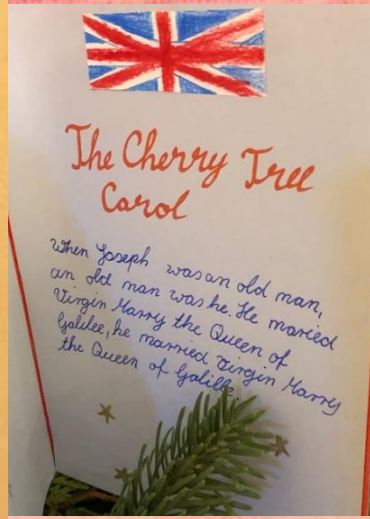 The Cherry Tree
Carol
When Joseph was an old man,
an old man was he. He maried
Virgin Marry the Queen of
Galilee, he married Virgin Marry
the Queen of Galille.